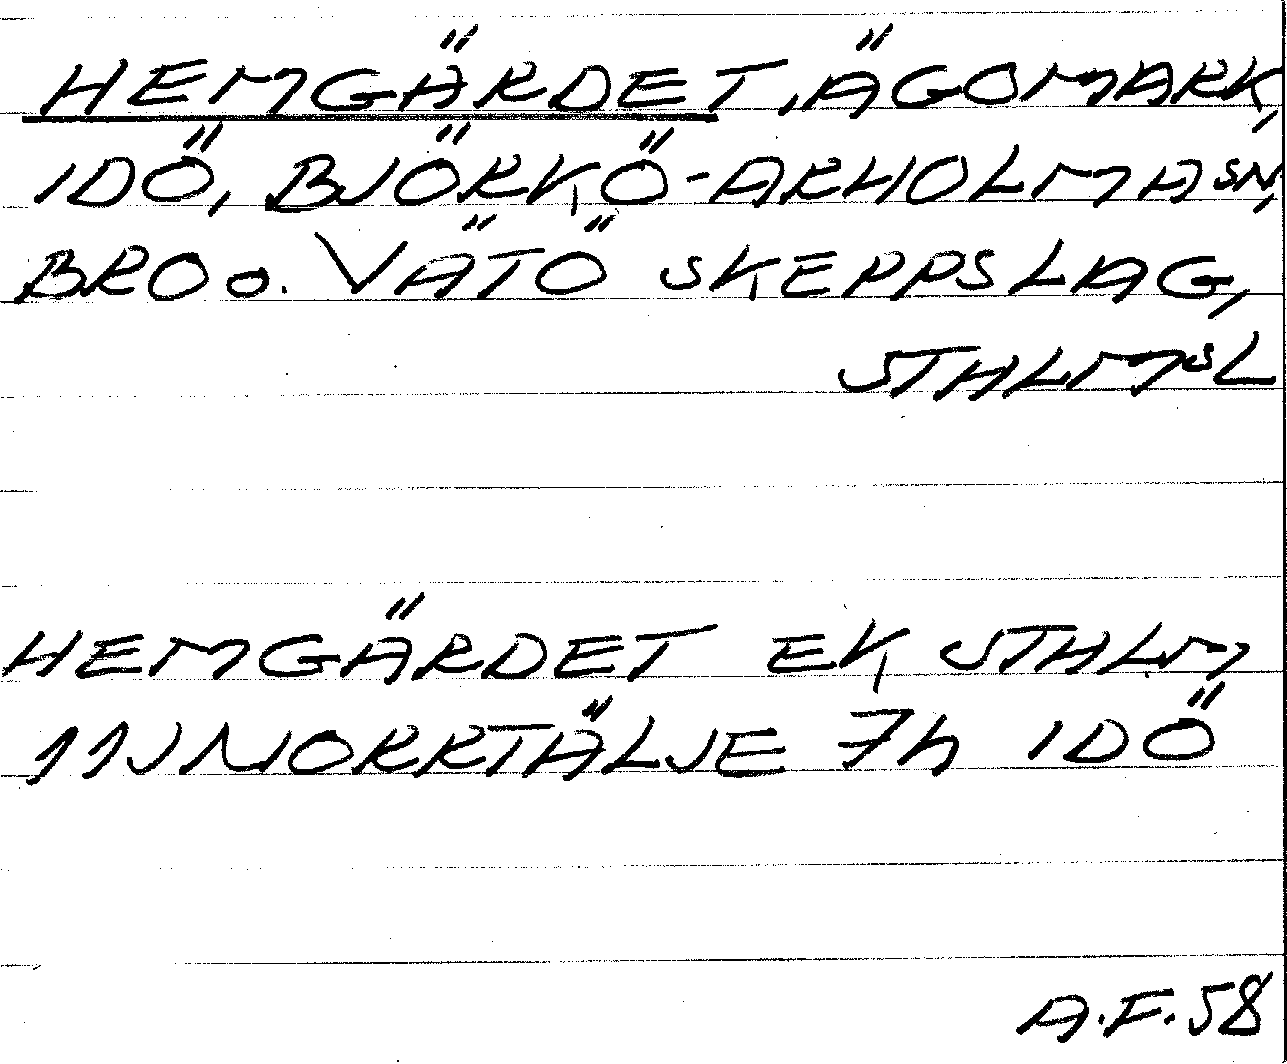 HEMGÄRDET, ÄGOMARK,
IDÖ, BJÖRKÖ-ARHOLMA SN,
BRO o. VÄTÖ SKEPPSLAG,
STHLMSL
HEMGÄRDET EK STHLM
11J NORRTÄLJE 7h IDÖ
A.F.58